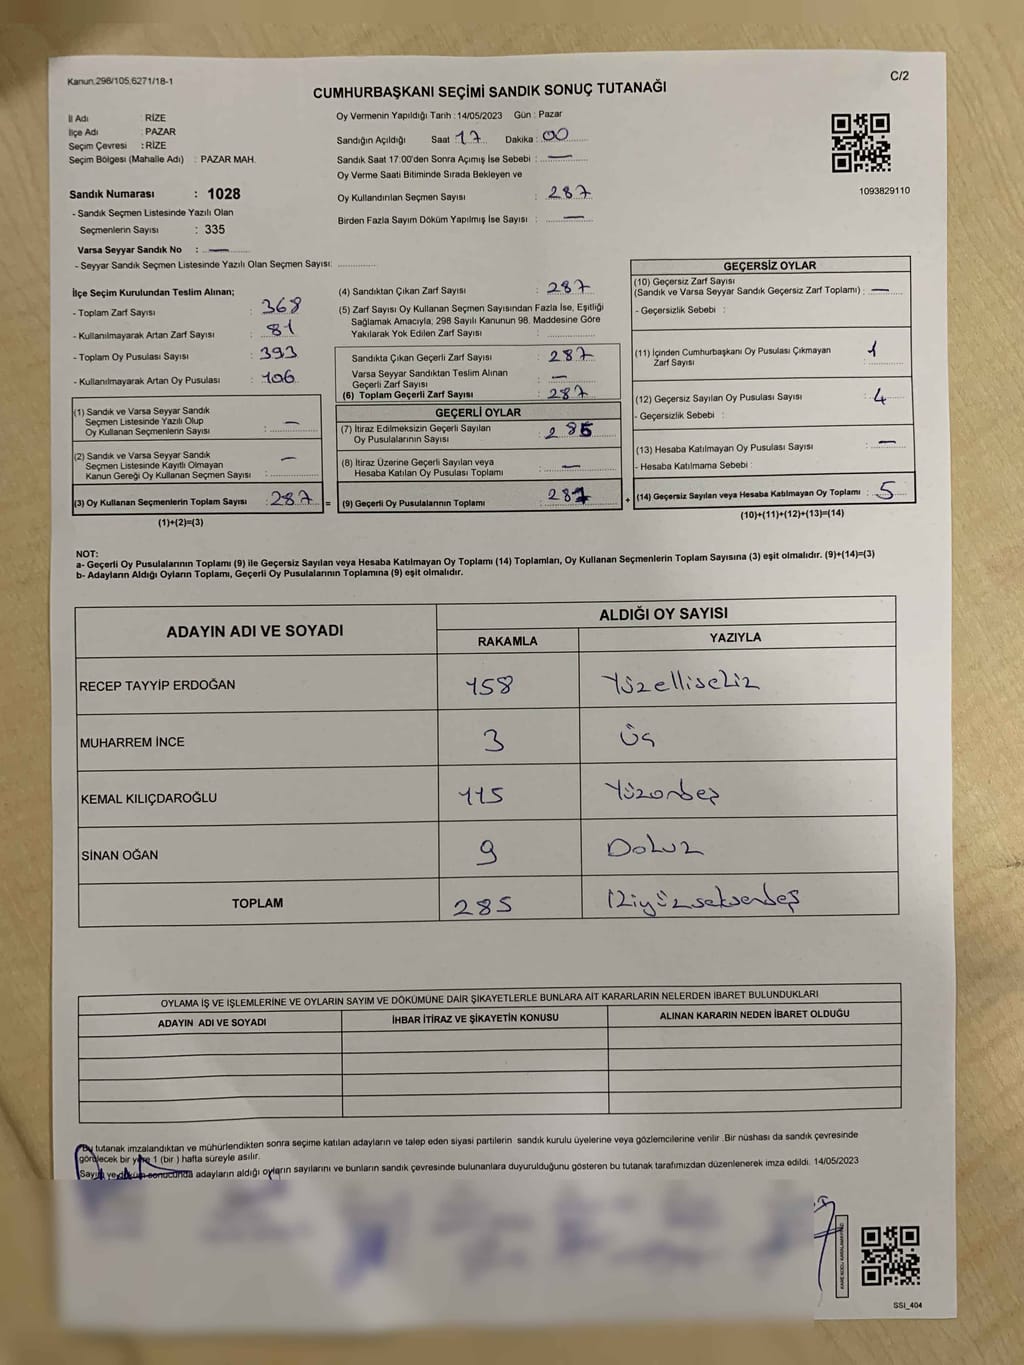 Kanun.298/105,6271/18-1
C/2
CUMHURBAŞKANI SEÇİMİ SANDIK SONUÇ TUTANAĞI
İl Adı : RİZE
İlçe Adı : PAZAR
Seçim Çevresi : RİZE
Seçim Bölgesi (Mahalle Adı) : PAZAR MAH.
Sandık Numarası : 1028
- Sandık Seçmen Listesinde Yazılı Olan
Seçmenlerin Sayısı : 335
Varsa Seyyar Sandık No : —
- Seyyar Sandık Seçmen Listesinde Yazılı Olan Seçmen Sayısı:
Oy Vermenin Yapıldığı Tarih : 14/05/2023 Gün : Pazar
Sandığın Açıldığı Saat 17 Dakika : 00
Sandık Saat 17.00'den Sonra Açımış İse Sebebi : —
Oy Verme Saati Bitiminde Sırada Bekleyen ve
Oy Kullandırılan Seçmen Sayısı : 287
Birden Fazla Sayım Döküm Yapılmış İse Sayısı : —
1093829110
İlçe Seçim Kurulundan Teslim Alınan;
- Toplam Zarf Sayısı : 368
- Kullanılmayarak Artan Zarf Sayısı : 81
- Toplam Oy Pusulası Sayısı : 393
- Kullanılmayarak Artan Oy Pusulası : 106
(1) Sandık ve Varsa Seyyar Sandık
Seçmen Listesinde Yazılı Olup
Oy Kullanan Seçmenlerin Sayısı : —
(2) Sandık ve Varsa Seyyar Sandık
Seçmen Listesinde Kayıtlı Olmayan
Kanun Gereği Oy Kullanan Seçmen Sayısı : —
(3) Oy Kullanan Seçmenlerin Toplam Sayısı : 287 =
(1)+(2)=(3)
(4) Sandıktan Çıkan Zarf Sayısı : 287
(5) Zarf Sayısı Oy Kullanan Seçmen Sayısından Fazla İse, Eşitliği
Sağlamak Amacıyla; 298 Sayılı Kanunun 98. Maddesine Göre
Yakılarak Yok Edilen Zarf Sayısı :
Sandıkta Çıkan Geçerli Zarf Sayısı : 287
Varsa Seyyar Sandıktan Teslim Alınan
Geçerli Zarf Sayısı : —
(6) Toplam Geçerli Zarf Sayısı : 287
GEÇERLİ OYLAR
(7) İtiraz Edilmeksizin Geçerli Sayılan
Oy Pusulalarının Sayısı : 285
(8) İtiraz Üzerine Geçerli Sayılan veya
Hesaba Katılan Oy Pusulası Toplamı : —
(9) Geçerli Oy Pusulalarının Toplamı : 287 +
GEÇERSİZ OYLAR
(10) Geçersiz Zarf Sayısı
(Sandık ve Varsa Seyyar Sandık Geçersiz Zarf Toplamı) : —
- Geçersizlik Sebebi :
(11) İçinden Cumhurbaşkanı Oy Pusulası Çıkmayan
Zarf Sayısı : 1
(12) Geçersiz Sayılan Oy Pusulası Sayısı : 4
- Geçersizlik Sebebi :
(13) Hesaba Katılmayan Oy Pusulası Sayısı : —
- Hesaba Katılmama Sebebi :
(14) Geçersiz Sayılan veya Hesaba Katılmayan Oy Toplamı : 5
(10)+(11)+(12)+(13)=(14)
NOT:
a- Geçerli Oy Pusulalarının Toplamı (9) ile Geçersiz Sayılan veya Hesaba Katılmayan Oy Toplamı (14) Toplamları, Oy Kullanan Seçmenlerin Toplam Sayısına (3) eşit olmalıdır. (9)+(14)=(3)
b- Adayların Aldığı Oyların Toplamı, Geçerli Oy Pusulalarının Toplamına (9) eşit olmalıdır.
ADAYIN ADI VE SOYADI
ALDIĞI OY SAYISI
RAKAMLA YAZIYLA
RECEP TAYYİP ERDOĞAN 158 Yüzellisekiz
MUHARREM İNCE 3 Üç
KEMAL KILIÇDAROĞLU 115 Yüzonbeş
SİNAN OĞAN 9 Dokuz
TOPLAM 285 İkiyüzseksenbeş
OYLAMA İŞ VE İŞLEMLERİNE VE OYLARIN SAYIM VE DÖKÜMÜNE DAİR ŞİKAYETLERLE BUNLARA AİT KARARLARIN NELERDEN İBARET BULUNDUKLARI
ADAYIN ADI VE SOYADI İHBAR İTİRAZ VE ŞİKAYETİN KONUSU ALINAN KARARIN NEDEN İBARET OLDUĞU
Bu tutanak imzalandıktan ve mühürlendikten sonra seçime katılan adayların ve talep eden siyasi partilerin sandık kurulu üyelerine veya gözlemcilerine verilir .Bir nüshası da sandık çevresinde
görülecek bir yere 1 (bir ) hafta süreyle asılır.
Sayım ve döküm sonucunda adayların aldığı oyların sayılarını ve bunların sandık çevresinde bulunanlara duyurulduğunu gösteren bu tutanak tarafımızdan düzenlenerek imza edildi. 14/05/2023
SSI_404